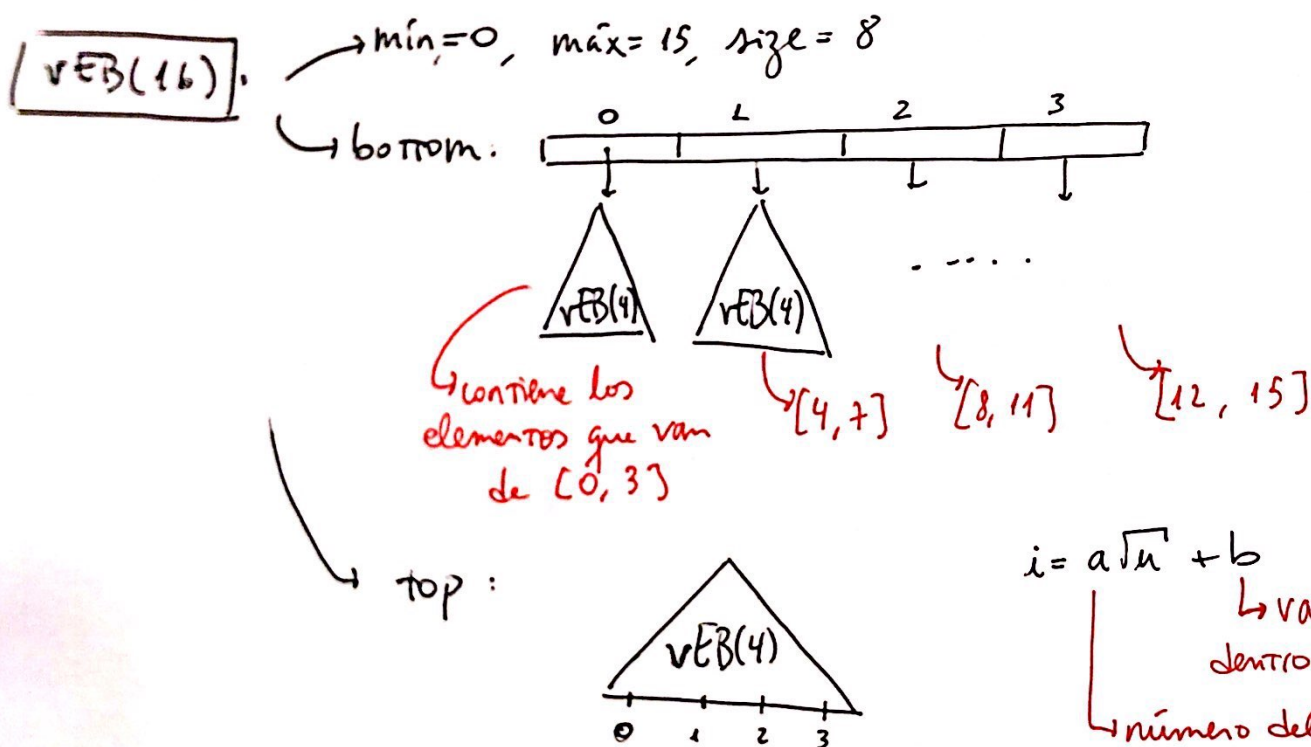 vEB(16).
mín=0, máx=15, size=8
bottom:
0 1 2 3
vEB(4) vEB(4) .....
contiene los
elementos que van
de [0, 3]
[4, 7] [8, 11] [12, 15]
top:
vEB(4)
0 1 2 3
i= a√u + b
va
dentro
número del